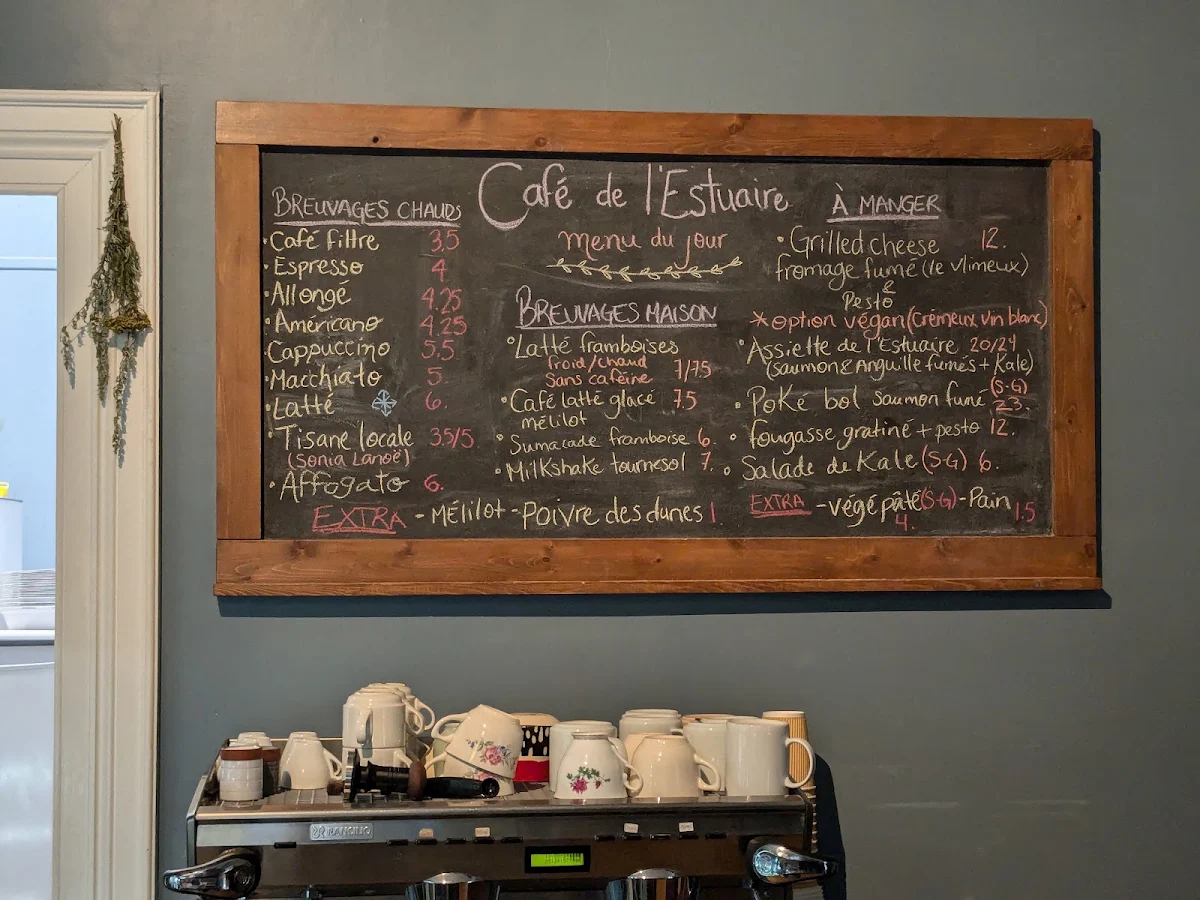 Café de l'Estuaire
menu du jour
BREUVAGES CHAUDS
• Café filtre 3,5
• Espresso 4
• Allongé 4.25
• Américano 4.25
• Cappuccino 5,5
• Macchiato 5.
• Latté 6.
• Tisane locale 3,5/5
(Sonia Lanoë)
• Affogato 6.
EXTRA - Mélilot - Poivre des dunes 1
BREUVAGES MAISON
• Latté framboises
froid/chaud 7/7,5
sans caféine
• Café latté glacé 7,5
mélilot
• Sumacade framboise 6.
• Milkshake tournesol 7.
À MANGER
• Grilled cheese 12.
fromage fumé (le vlimeux)
&
Pesto
* option végan (Crémeux vin blanc)
• Assiette de l'Estuaire 20/24
(saumon & Anguille fumés + Kale)
• Poké bol saumon fumé (S-G) 23.
• fougasse gratiné + pesto 12.
• Salade de Kale (S-G) 6.
EXTRA - végé pâté (S-G) - Pain 1.5
4.
RANCILIO